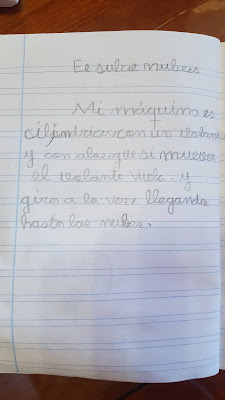 Ee subre nubees
Mi máquina es
cilíndrica con un volante
y con alas que si mueves
el volante vuela. y
gira a la vez, llegando
hasta las nubes.